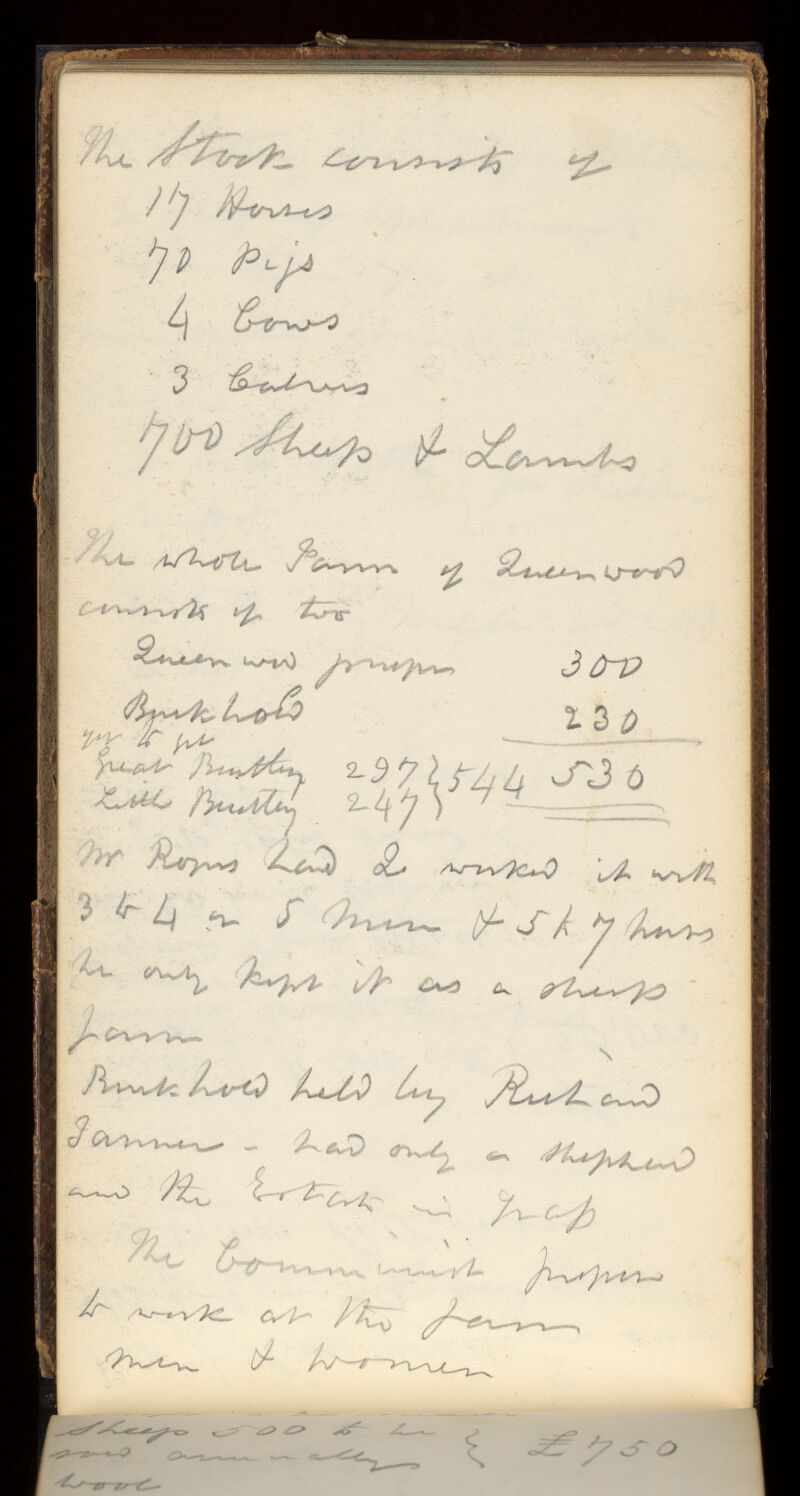 The Stock consists of
17 Horses
70 Pigs
4 Cows
3 Calves
700 Sheep & Lambs
The whole Farm of Queenwood
consists of two
Queenwood proper 300
Buckhold 230
yet to get
Great Bentley 297 } 544 530
Little Bentley 247 }
Mr Rogers had worked it with
3 to 4 or 5 Men & 5 to 7 horses
he only kept it as a sheep
farm
Buckhold held by Richard
Tanner - had only a shepherd
and the Estate in Grass
The Communist propose
to work at the farm
men & women
Sheep 500 to be } £750
sold annually
wool